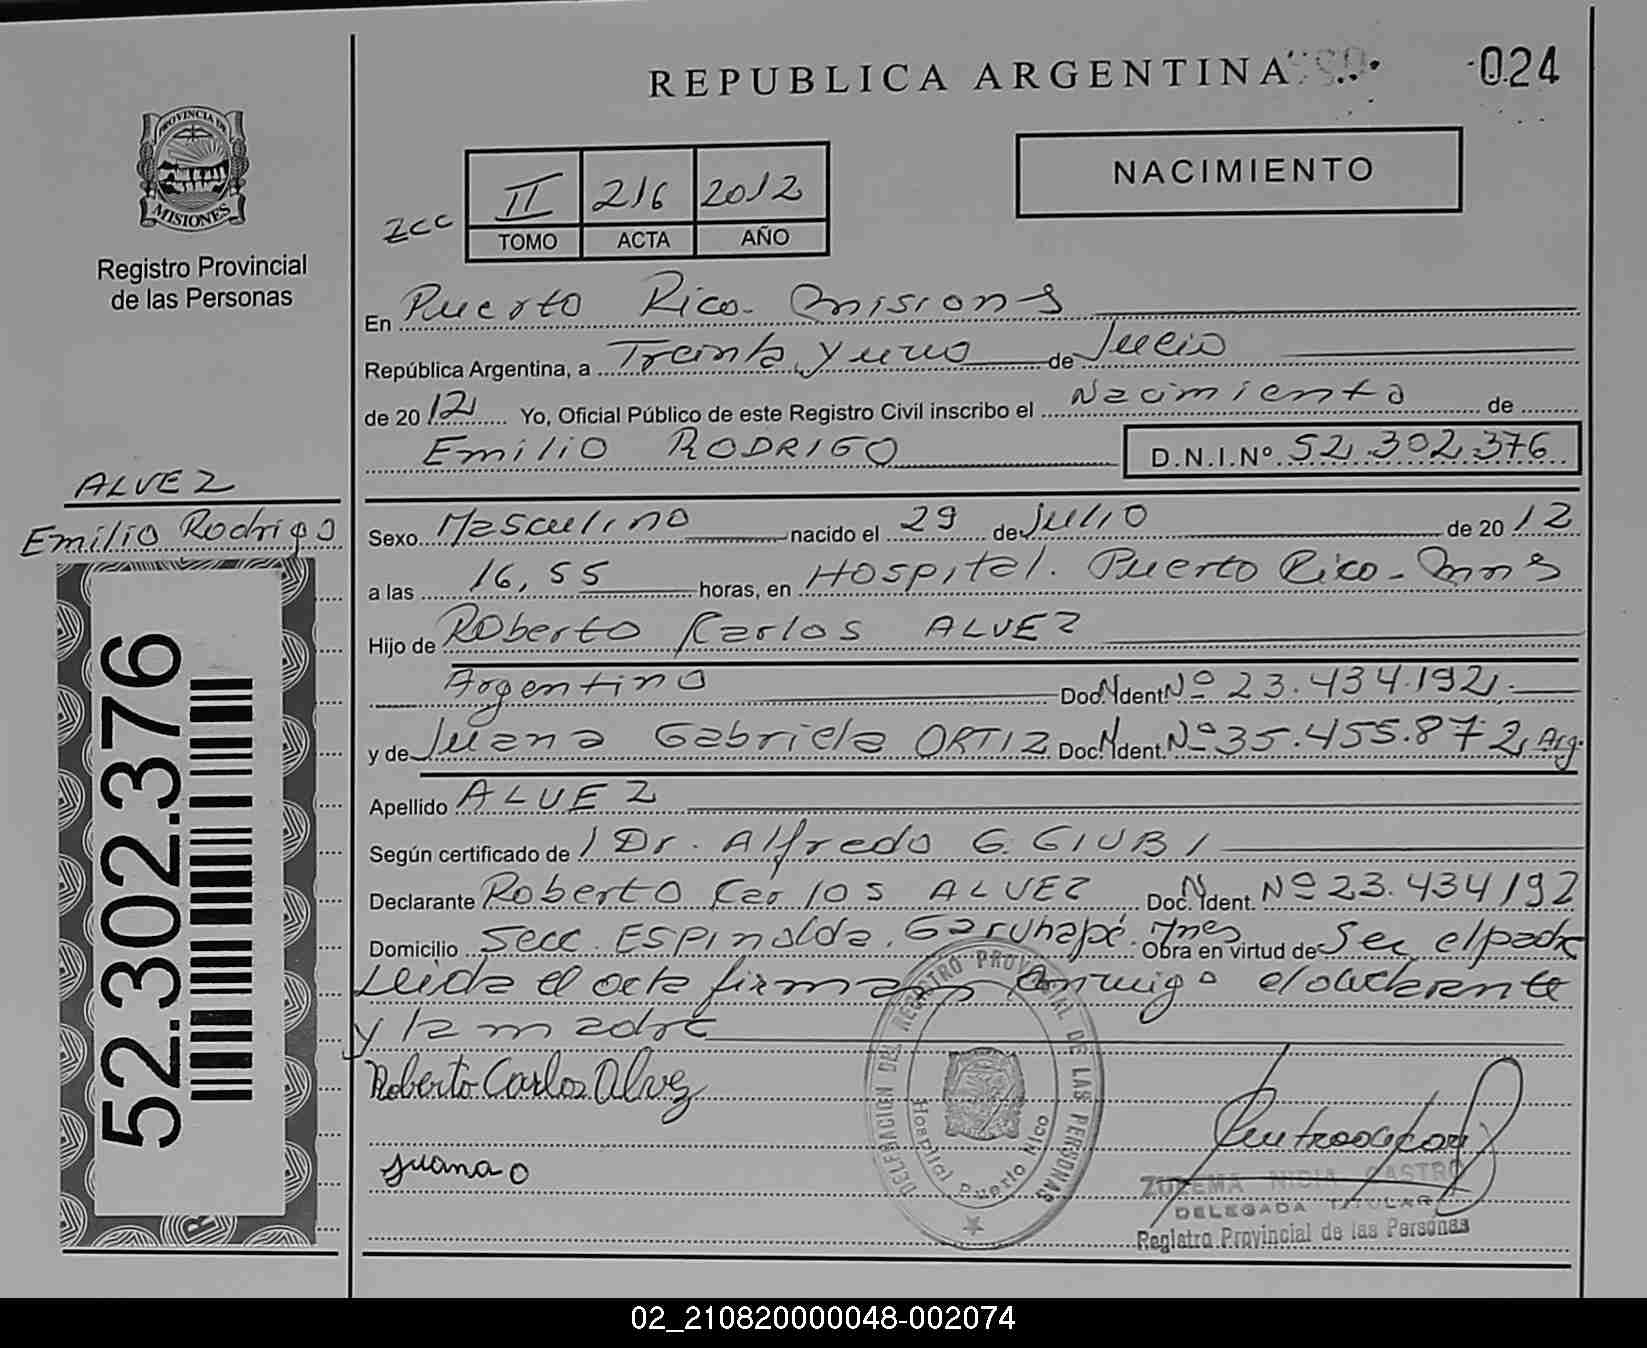 REPUBLICA ARGENTINA
024
PROVINCIA DE
MISIONES
Registro Provincial
de las Personas
NACIMIENTO
zcc
II 216 2012
TOMO ACTA AÑO
En Puerto Rico - Misiones
República Argentina, a Treinta y uno de Julio
de 2012 Yo, Oficial Público de este Registro Civil inscribo el Nacimiento de
Emilio RODRIGO D.N.I.Nº 52.302.376
ALVEZ
Emilio Rodrigo
52.302.376
Sexo Masculino nacido el 29 de Julio de 2012
a las 16,55 horas, en Hospital. Puerto Rico - Mnes
Hijo de Roberto Carlos ALVEZ
Argentino Doc. N Ident Nº 23.434.192
y de Juana Gabriela ORTIZ Doc. N Ident. Nº 35.455.872 Arg.
Apellido ALVEZ
Según certificado de / Dr. Alfredo G. GIUBI
Declarante Roberto Carlos ALVEZ Doc. N Ident. Nº 23.434192
Domicilio Secc. ESPINOLDA. Garuhapé. Mnes Obra en virtud de Ser el padre
Leida el acta firman conmigo el declarante
y la madre
Roberto Carlos Alvez
Juana O
DELEGACION DEL REGISTRO PROVINCIAL DE LAS PERSONAS
Hospital Puerto Rico
ZULEMA NIDIA CASTRO
DELEGADA TITULAR
Registro Provincial de las Personas
02_210820000048-002074